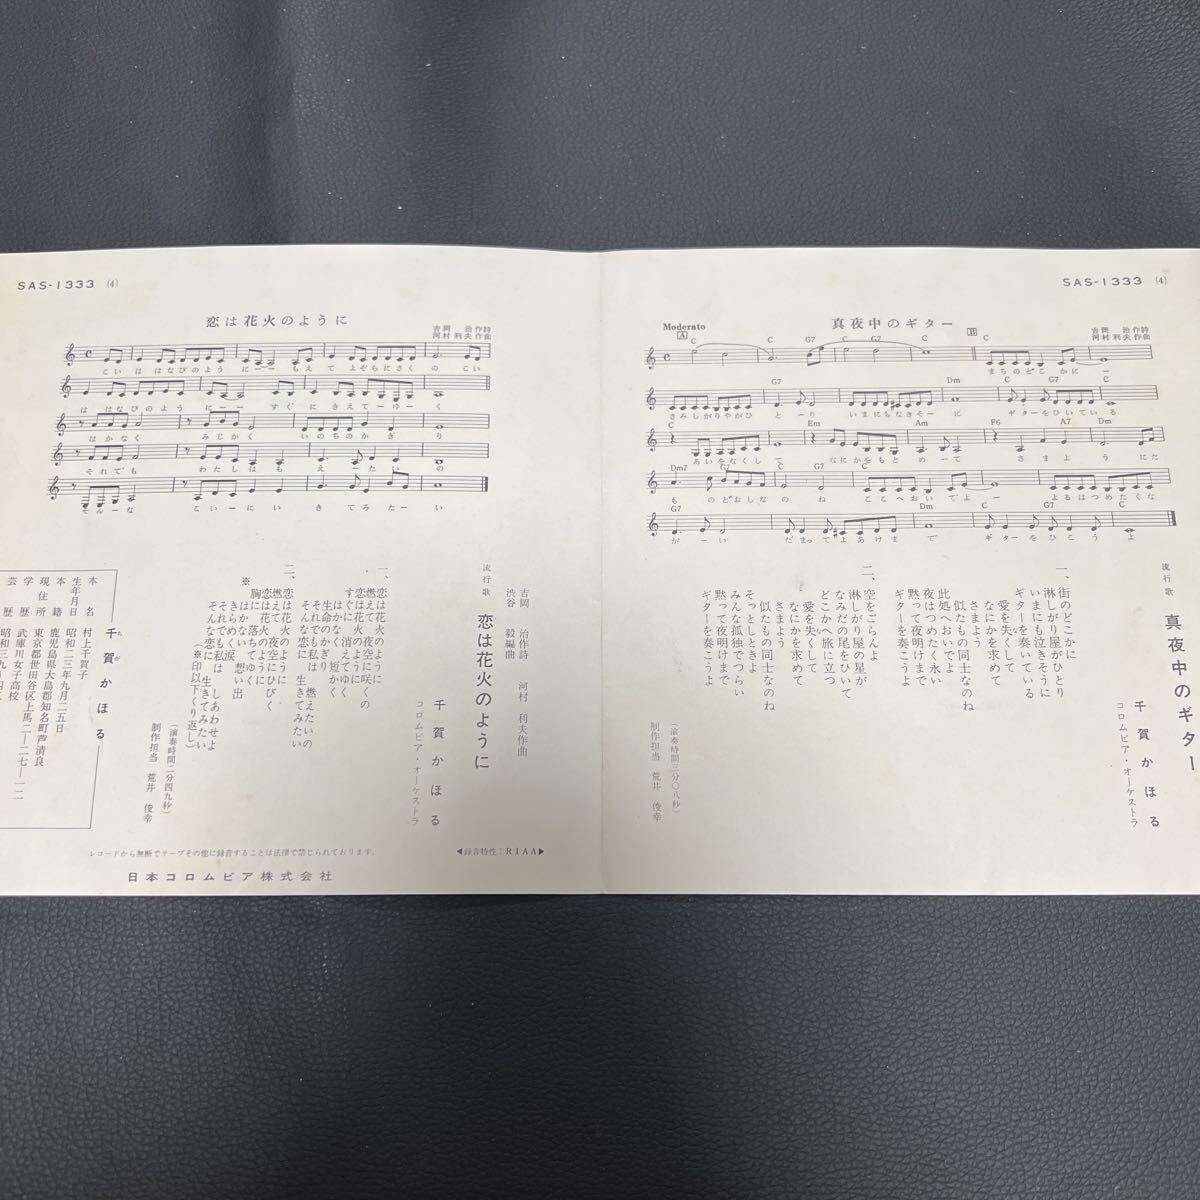 SAS-1333 (4)
真夜中のギター
吉岡 治作詩
河村利夫作曲
Moderato
A
B
C C G7 C C
まちのどこかに ー
G7 Dm C G7 C
さみしがりやがひ と ー り いまにもなきそー に ギターをひいている
C Em Am F6 A7 Dm
あいをなくし て なにかをもと めー て さ ま よ う に た
Dm7 G7 C
も の どおしな の ね ここへおい で よ ー よるはつめたくな
G7 Dm C G7 C
が ー い だ まっ て よ あ け ま で ギ タ ー を ひ こ う よ
流行歌
真夜中のギター
千賀かほる
コロムビア・オーケストラ
一、街のどこかに
淋しがり屋がひとり
いまにも泣きそうに
ギターを奏いている
愛を失くして
なにかを求めて
さまよう
似たもの同士なのね
此処へおいでよ
夜はつめたく永い
黙って夜明けまで
ギターを奏こうよ
二、空をごらんよ
淋しがり屋の星が
なみだの尾をひいて
どこかへ旅に立つ
愛を失くして
なにかを求めて
さまよう
似たもの同士なのね
そっとしときよ
みんな孤独でつらい
黙って夜明けまで
ギターを奏こうよ
(演奏時間三分〇八秒)
制作担当 荒井 俊幸
SAS-1333 (4)
恋は花火のように
吉岡 治作詩
河村利夫作曲
こ い は は な び の よ う に ー ー も え て よ ぞ ら に さ く の こ い
は はなびのよう にーー すぐ に きえてーゆー く
は か な く み じ か く い の ち の か ぎ り
そ れ で も わ た し は も え ー た い の
そんーな こいーにい きてみたーい
吉岡 治作詩 河村 利夫作曲
渋谷 毅編曲
流行歌
恋は花火のように
千賀かほる
コロムビア・オーケストラ
一、恋は花火のように
燃えて 夜空に咲くの
恋は花火のように
すぐに 消えてゆく
はかなく 短かく
生命のかぎり
それでも私は 燃えたいの
そんな恋に 生きてみたい
二、恋は花火のように
燃えて 夜空にひびく
恋は花火のように
胸に落ちてゆく
※はかない 想い出
きらめく涙
それでも私は しあわせよ
そんな恋に 生きてみたい
(※印以下くり返し)
(演奏時間二分四九秒)
制作担当 荒井 俊幸
千賀かほる
本名 村上千賀子
生年月日 昭和二三年九月二五日
本籍 鹿児島県大島郡知名町芦清良
現住所 東京都世田谷区上馬二ー二七ー一二
学歴 武庫川女子高校
芸歴
レコードから無断でテープその他に録音することは法律で禁じられております。
◀録音特性:RIAA▶
日本コロムビア株式会社